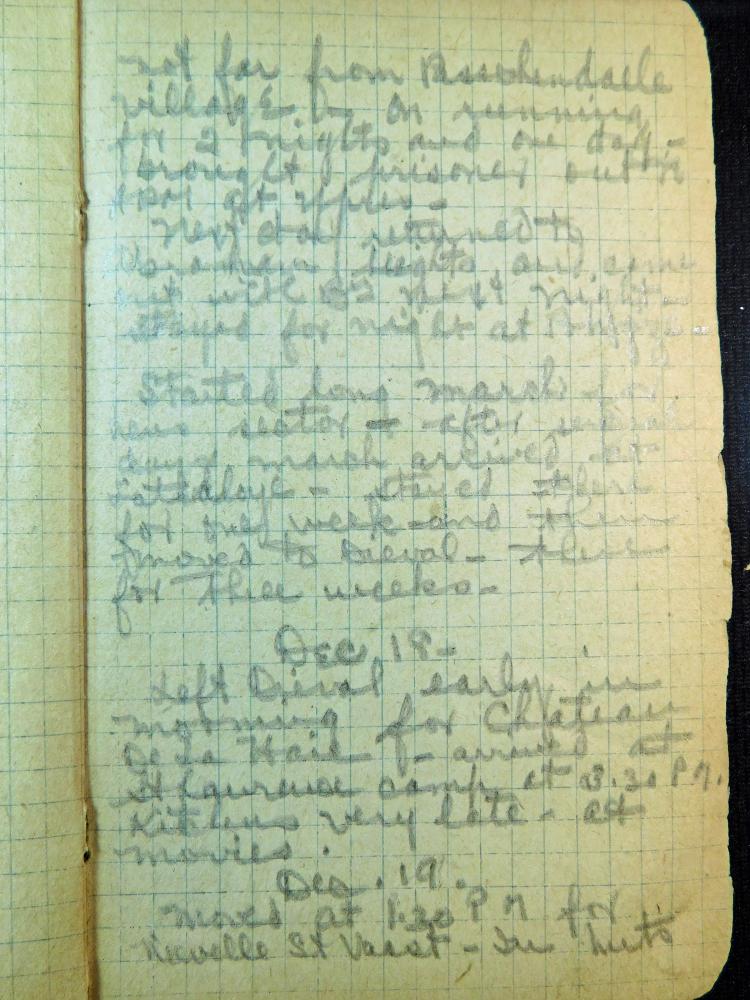 not far from Passchendaele
village. - On running
for 2 knights and one day -
Brought prisoner out to
at Ypres -
Next day returned to
Heights and came
out with Bn next night
stayed for night at
Started long march for
new sector - after several
days march arrived at
- stayed there
for one week and then
moved to Dieval - there
for thee weeks -
Dec. 18 -
Left Dieval early in
morning for Chateau
De La Haie - arrived at
St Lawrence camp at 3.30 P M.
Kitchens very late - at
movies.
Dec. 19.
Moved at 1.30 P M for
Neuville St Vaast - In huts